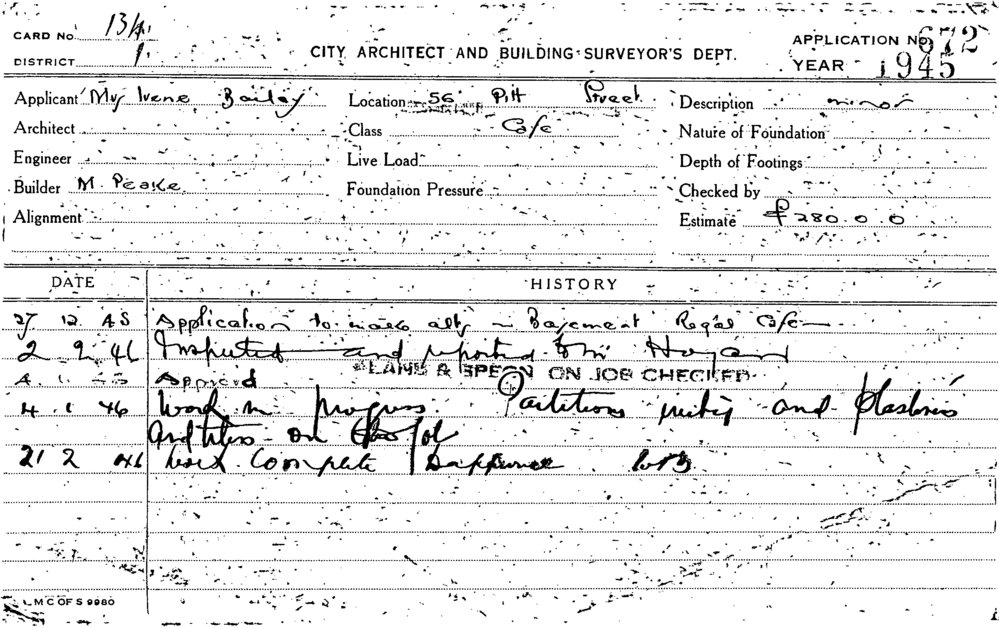 CARD No. 13/4
DISTRICT 1.
CITY ARCHITECT AND BUILDING SURVEYOR'S DEPT.
APPLICATION No. 672
YEAR 1945
Applicant Mrs Irene Bailey
Location 56 Pitt Street
Description minor
Architect
Class Cafe
Nature of Foundation
Engineer
Live Load
Depth of Footings
Builder M. Peake
Foundation Pressure
Checked by
Alignment
Estimate £280.0.0
DATE HISTORY
27 12 45 Application to make alts Basement Regal Cafe
2 46 Inspected and reported Mr Hogan
PLANS & SPECN ON JOB CHECKED
Approvd
4 1 46 Work in progress. Partitions and Plasterers
on job
21 2 46 Work Complete
M C OF S 9980